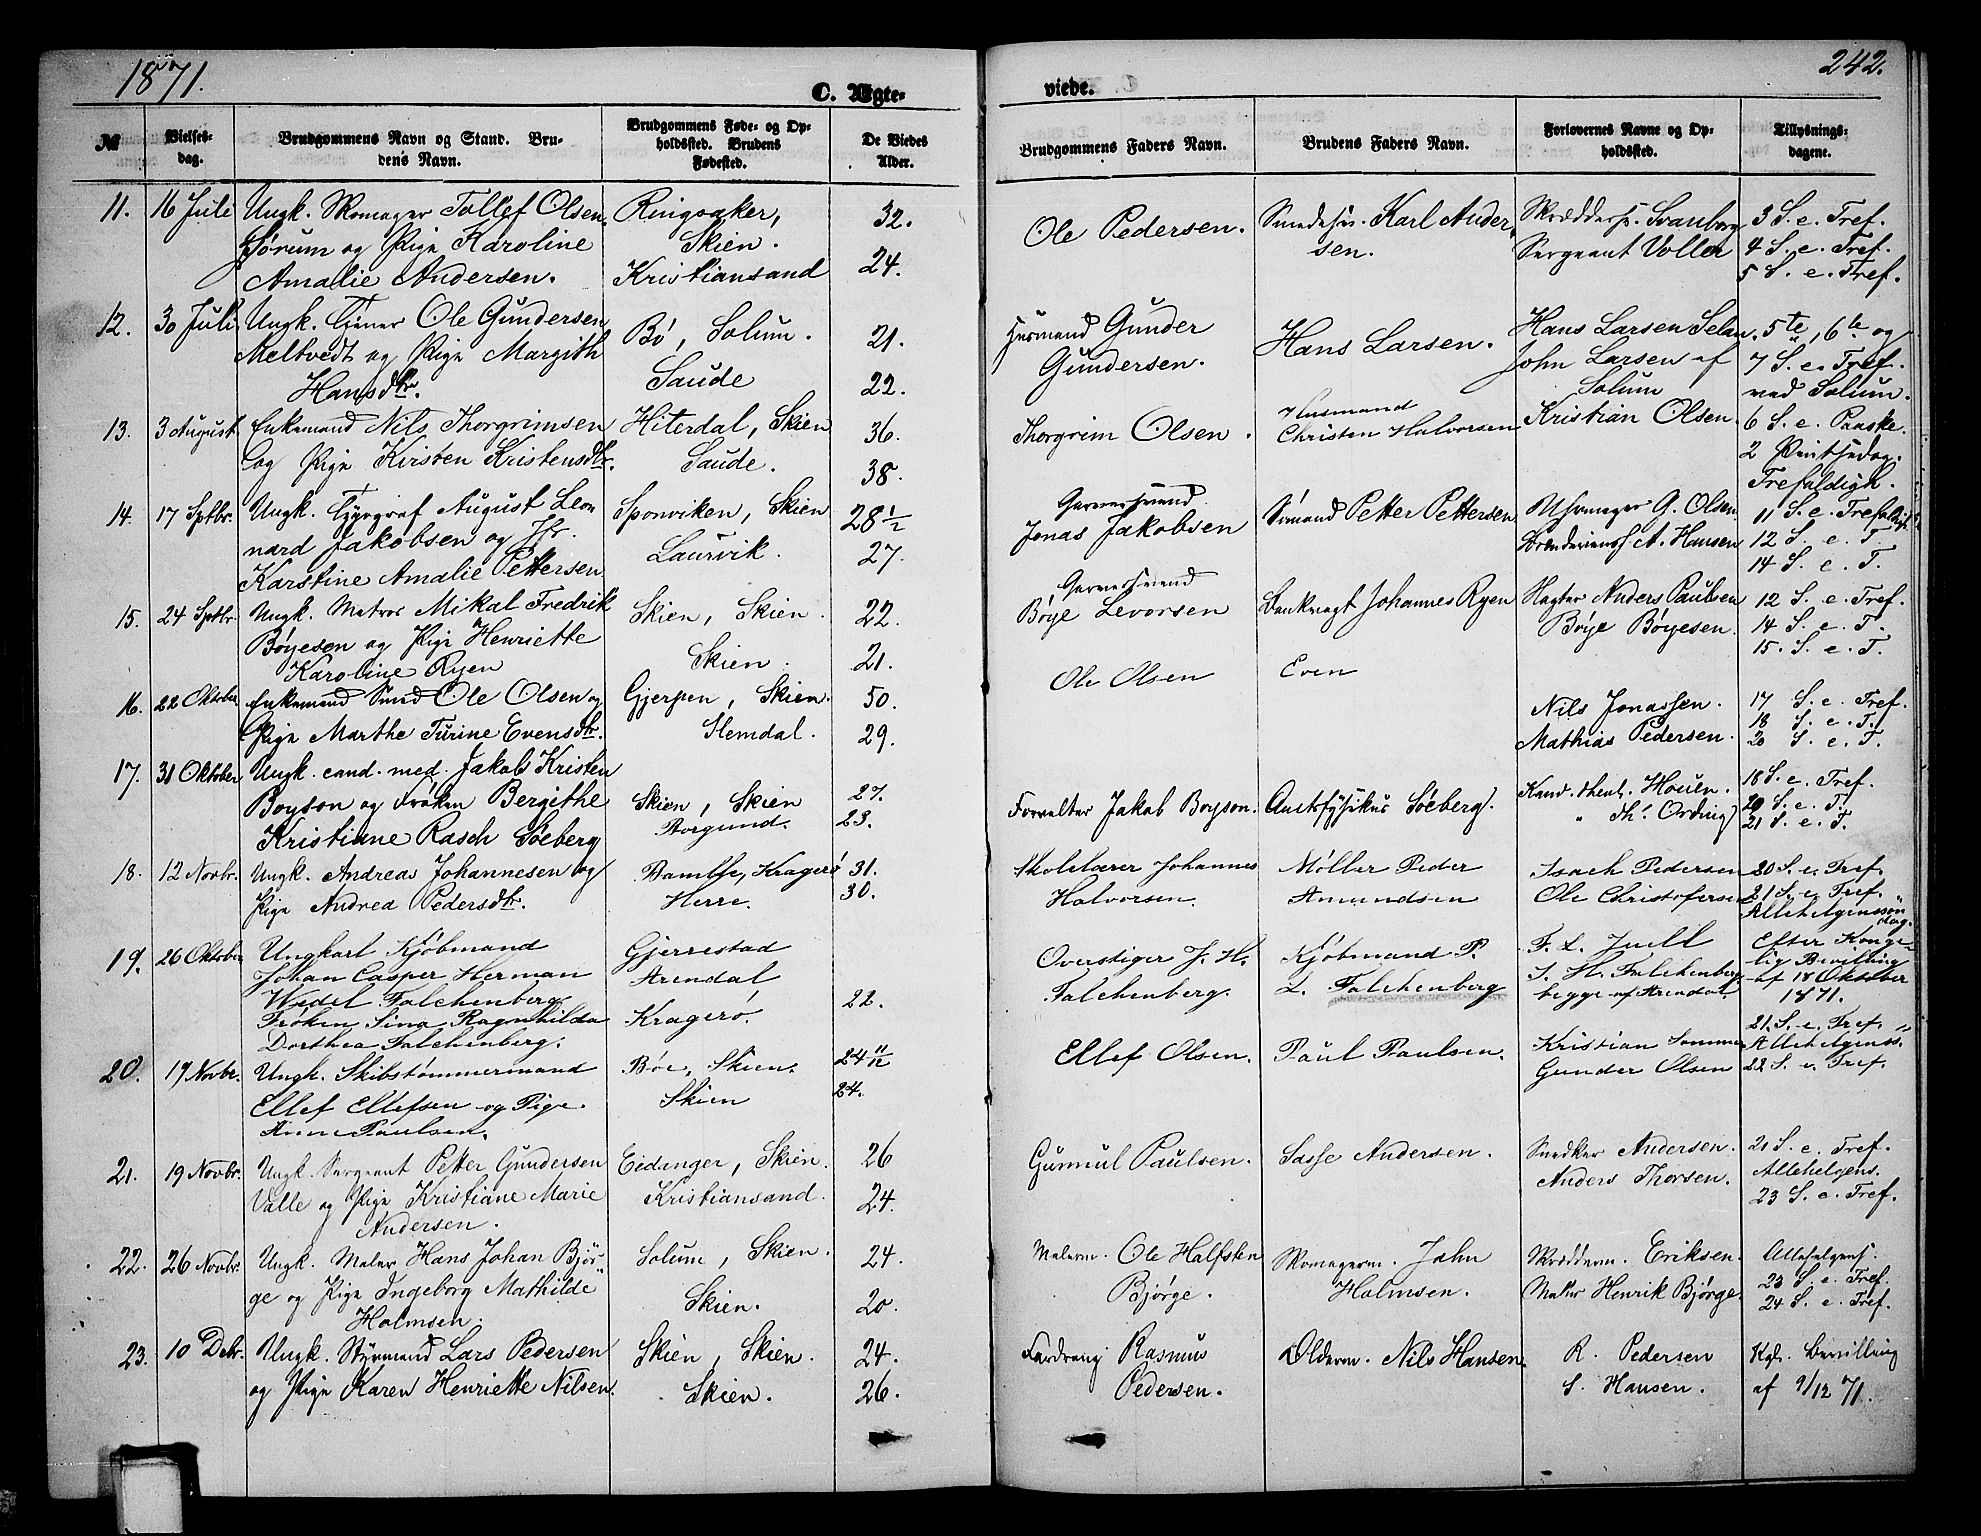 1871.
242.
C. Ægte-
viede.
№
Vielses-
dag.
Brudgommens Navn og Stand. Bru-
dens Navn.
Brudgommens Føde- og Op-
holdssted. Brudens
Fødested.
De Viedes
Alder.
Brudgommens Faders Navn.
Brudens Faders Navn.
Forlovernes Navne og Op-
holdssted.
Tillysnings-
dagene.
11. 16 Juli Ungk. Skomager Tollef Olsen Ringsaker, 32. Ole Pedersen. Smedesv. Karl Ander- Skræddersv. Svanberg 3 S. e. Tref.
Sørum og Pige Karoline Skien. sen. Sergeant Voller 4 S. e. Tref.
Amalie Andersen. Kristiansand 24. 5 S. e. Tref.
12. 30 Juli Ungk. Tjener Ole Gundersen Bø, Solum. 21. Husmand Gunder Hans Larsen. Hans Larsen 5te, 6te og
Meltvedt og Pige Margith Gundersen. John Larsen af 7 S. e. Tref.
Hansdtr. Saude 22. Solum ved Solum.
13. 3 August Enkemand Nils Thorgrimsen Hiterdal, Skien 36. Thorgrim Olsen. Husmand Kristian Olsen. 6 S. e. Paaske.
og Pige Kirsten Kristensdtr. Saude. 38. Christen Halvorsen 2 Pintsedag.
Trefoldigh.
14. 17 Sptbr. Ungk. Typograf August Leon Sponviken, Skien 28 1/2 Garversvend Sømand Petter Pettersen Uhrmager G. Olsen. 11 S. e. Trefoldigh.
nard Jakobsen og Jfr. Laurvik. 27. Jonas Jakobsen A. Hansen 12 S. e. T.
Karstine Amalie Pettersen 14 S. e. T.
15. 24 Sptbr. Ungk. Matros Mikal Fredrik Skien, Skien. 22. Garversvend Bankvagt Johannes Ryen Anders Paulsen 12 S. e. Tref.
Böyesen og Pige Henriette Böye Levorsen Böye Böyesen. 14 S. e. T.
Karoline Ryen Skien. 21. 15. S. e. T.
16. 22 Oktober Enkemand Ole Olsen og Gjerpen, Skien. 50. Ole Olsen Even Nils Jonassen. 17 S. e. Tref.
Pige Marthe Turine Evensdtr. Hemdal. 29. Mathias Pedersen. 18 S. e. T.
20 S. e. T.
17. 31 Oktober Ungk. cand. med. Jakob Kristen Skien, Skien 27. Forvalter Jakob Boyson. Amtsfysikus Söeberg. Kand. theol. Houen. 18 S. e. Tref.
Boyson og Frøken Bergithe Borgund. 23. " Th. Ording 20 S. e. T.
Kristiane Rasch Söeberg 21 S. e. T.
18. 12 Novbr. Ungk. Andreas Johannesen og Bamble, Kragerö 31. Skolelærer Johannes Möller Peder Isach Pedersen 20 S. e. Tref.
Pige Andrea Pedersdtr. Herre. 30. Halvorsen. Amundsen Ole Christofersen 21 S. e. Tref.
Allehelgenssön
dag.
19. 26 Oktober Ungkarl Kjöbmand Gjerrestad Overstiger J. H. Kjöbmand P. F. L. Juell Efter Konge-
Johan Casper Herman Arendal Falchenberg. L. Falchenberg S. H. Falchenberg lig Bevilling
Wedel Falchenberg. 22. begge af Arendal. af 18 Oktober
Fröken Sina Ragnhilda Kragerö. 1871.
Dorthea Falchenberg.
20. 19 Novbr. Ungk. Skibstömmermand Böe, Skien. 24 11/12 Ellef Olsen. Paul Paulsen. Kristian Sommer 21. S. e. Tref.
Ellef Ellefsen og Pige Skien 24. Gunder Olsen Allehelgenss.
Anne Paulsen. 22 S. e. Tref.
21. 19 Novbr. Ungk. Sergeant Petter Gundersen Eidanger, Skien. 26 Gunnul Paulsen. Sasse Andersen. Snedker Andersen. 21 S. e. Tref.
Valle og Pige Kristiane Marie Kristiansand. 24. Anders Thorsen. Allehelgens.
Andersen. 23 S. e. Tref.
22. 26 Novbr. Ungk. Maler Hans Johan Björ- Solum, Skien. 24. Malerm. Ole Halfsten Skomagerm. John Skrædderm. Eriksen. Allehelgens.
ge og Pige Ingeborg Mathilde Björge. Holmsen. Maler Henrik Björge. 23 S. e. Tref.
Holmsen. Skien. 20. 24 S. e. Tref.
23. 10 Debr. Ungk. Styrmand Lars Pedersen Skien, Skien. 24. Rasmus Olderm. Nils Hansen. R. Pedersen Kgl. Bevilling
og Pige Karen Henriette Nilsen. Skien. 26. Pedersen. S. Hansen. af 9/12 71.